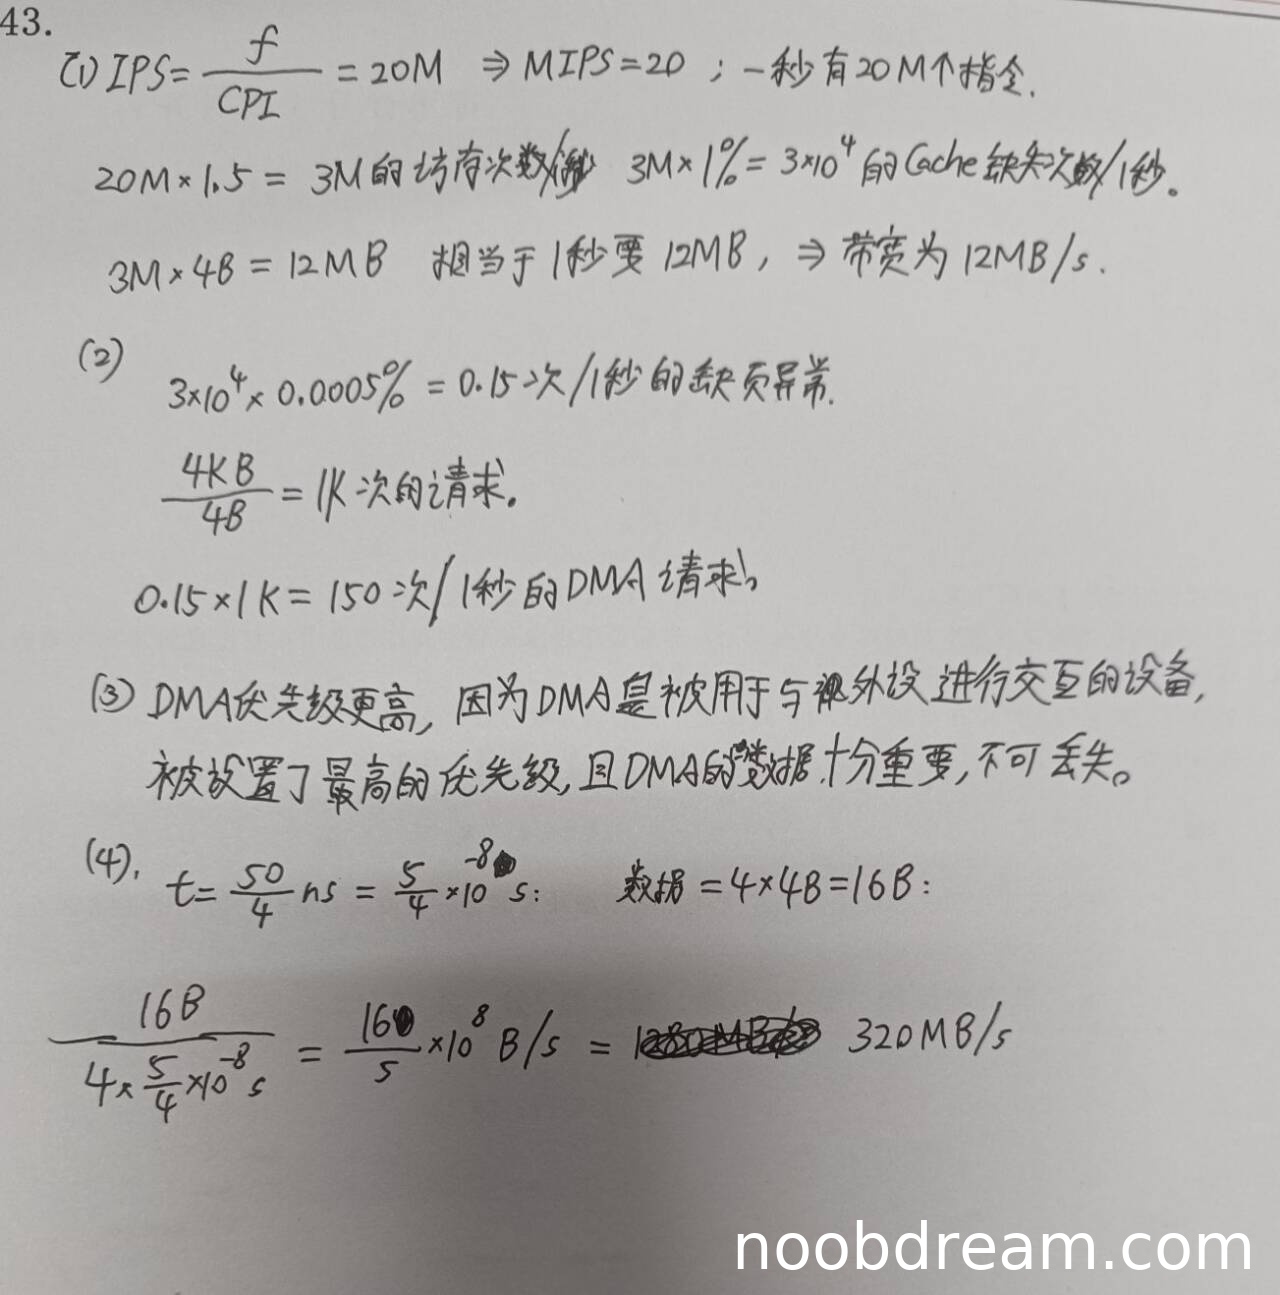 43.
(1) IPS = f/CPI = 20M ⇒ MIPS = 20 ; 一秒有20M个指令.
20M × 1.5 = 3M的访存次数/ 3M × 1% = 3×10^4 的Cache缺失次数/1秒。
3M × 4B = 12MB 相当于1秒要12MB, ⇒ 带宽为12MB/s.
(2)
3×10^4 × 0.0005% = 0.15次/1秒的缺页异常.
4KB/4B = 1K次的请求.
0.15×1K = 150次/1秒的DMA请求。
(3) DMA优先级更高, 因为DMA是被用于与外设进行交互的设备,
被设置了最高的优先级, 且DMA的数据十分重要, 不可丢失。
(4). t = 50/4 ns = 5/4 ×10^-8 s: 数据 = 4×4B = 16B:
16B/(4×5/4×10^-8 s) = 16/5 ×10^8 B/s = 320MB/s
noobdream.com